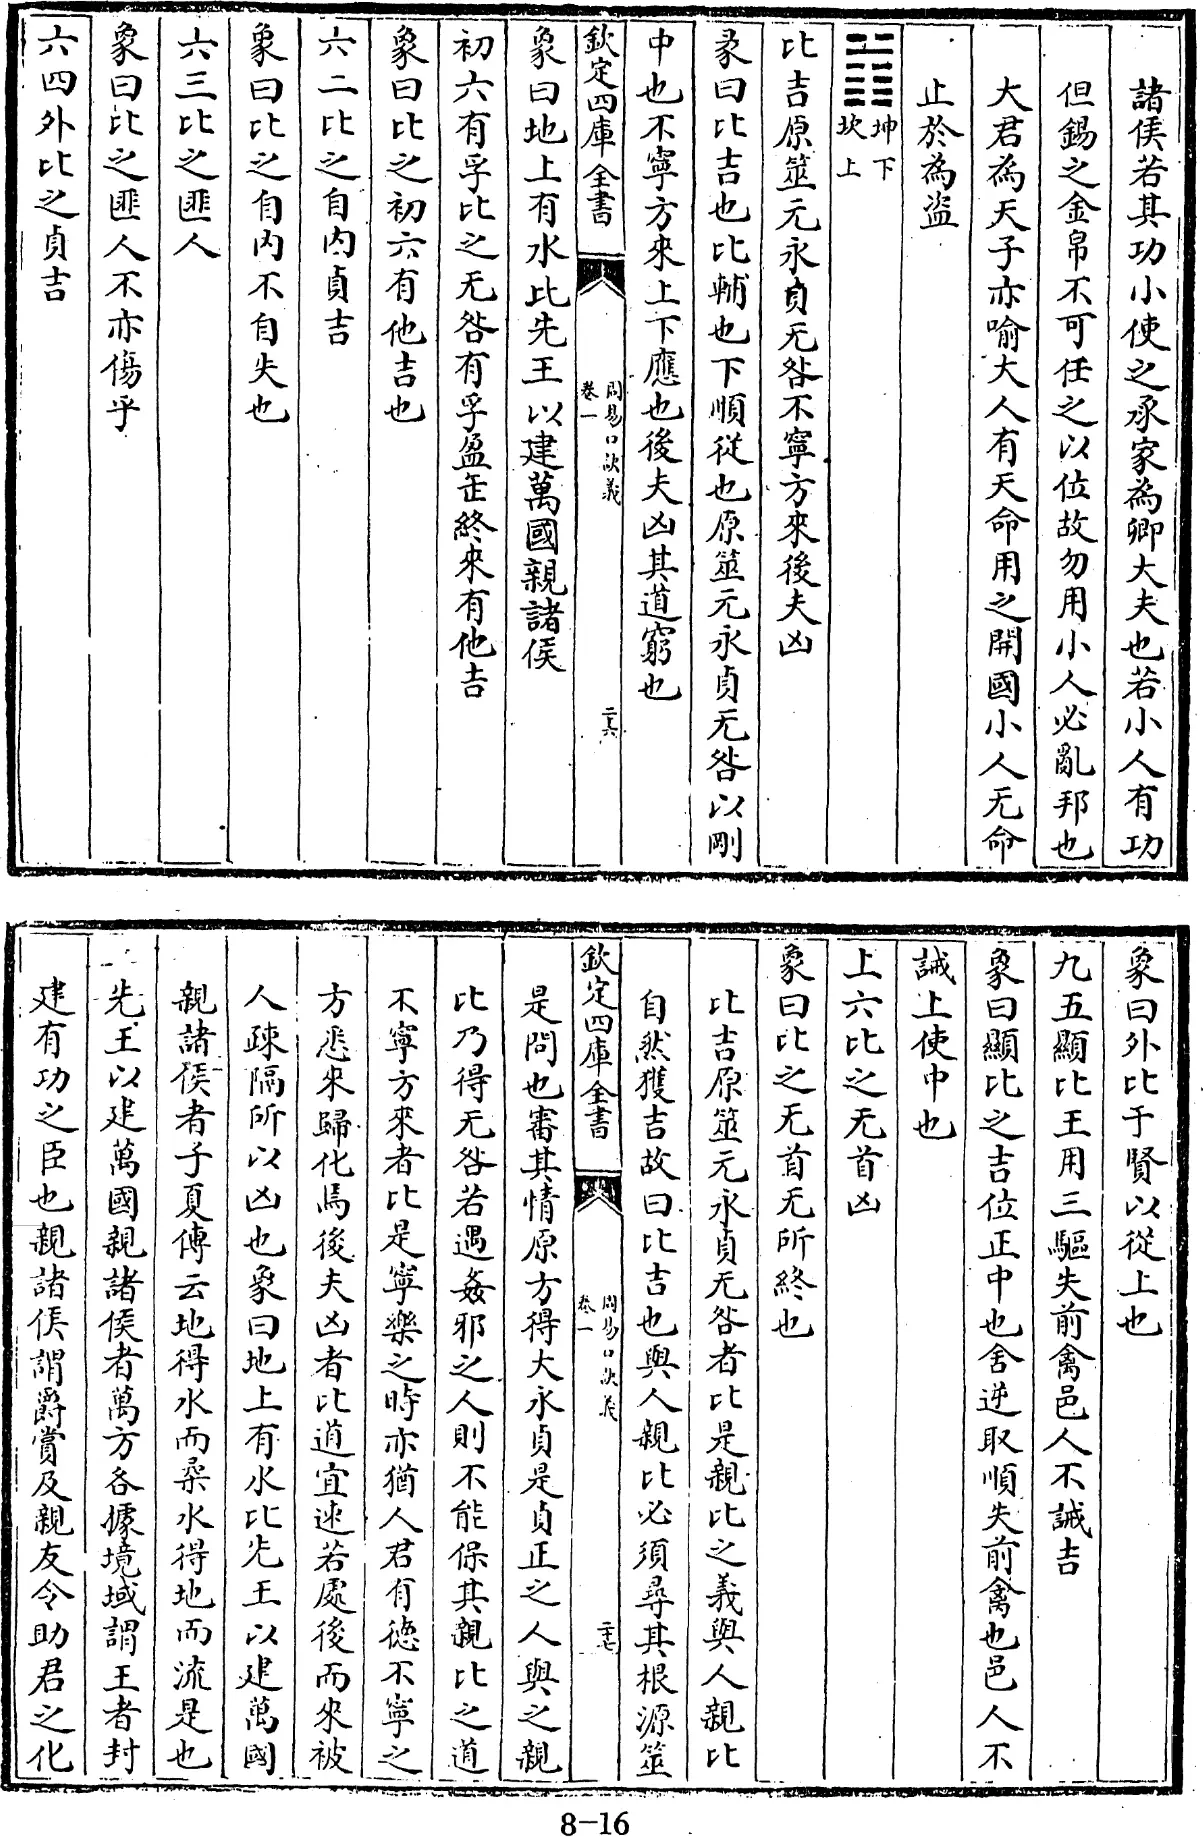 諸侯若其功小使之承家為卿大夫也若小人有功
但錫之金帛不可任之以位故勿用小人必亂邦也
大君為天子亦喻大人有天命用之開國小人无命
止於為盜
坤下
坎上
比吉原筮元永貞无咎不寧方來後夫凶
彖曰比吉也比輔也下順從也原筮元永貞无咎以剛
中也不寧方來上下應也後夫凶其道窮也
欽定四庫全書
周易口訣義
卷一
二十六
象曰地上有水比先王以建萬國親諸侯
初六有孚比之无咎有孚盈缶終來有他吉
象曰比之初六有他吉也
六二比之自內貞吉
象曰比之自內不自失也
六三比之匪人
象曰比之匪人不亦傷乎
六四外比之貞吉
象曰外比于賢以從上也
九五顯比王用三驅失前禽邑人不誡吉
象曰顯比之吉位正中也舍逆取順失前禽也邑人不
誡上使中也
上六比之无首凶
象曰比之无首无所終也
比吉原筮元永貞无咎者比是親比之義與人親比
自然獲吉故曰比吉也與人親比必須尋其根源筮
欽定四庫全書
周易口訣義
卷一
二十七
是問也審其情原方得大永貞是貞正之人與之親
比乃得无咎若遇姦邪之人則不能保其親比之道
不寧方來者比是寧樂之時亦猶人君有德不寧之
方悉來歸化焉後夫凶者比道宜速若處後而來被
人疎隔所以凶也象曰地上有水比先王以建萬國
親諸侯者子夏傳云地得水而柔水得地而流是也
先王以建萬國親諸侯者萬方各據境域謂王者封
建有功之臣也親諸侯謂爵賞及親友令助君之化
8-16